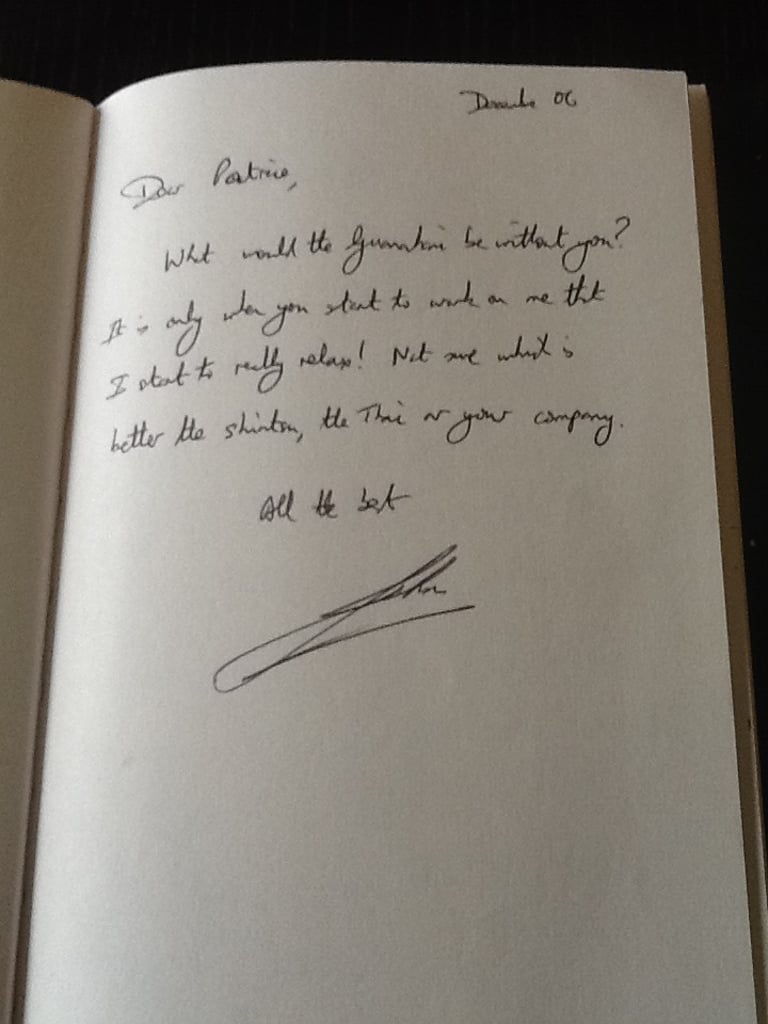 December 06
Dear Patrice,
What would the be without you?
It is only when you start to work on me that
I start to really relax! Not sure which is
better the shiatsu, the Thai or your company.
All the best